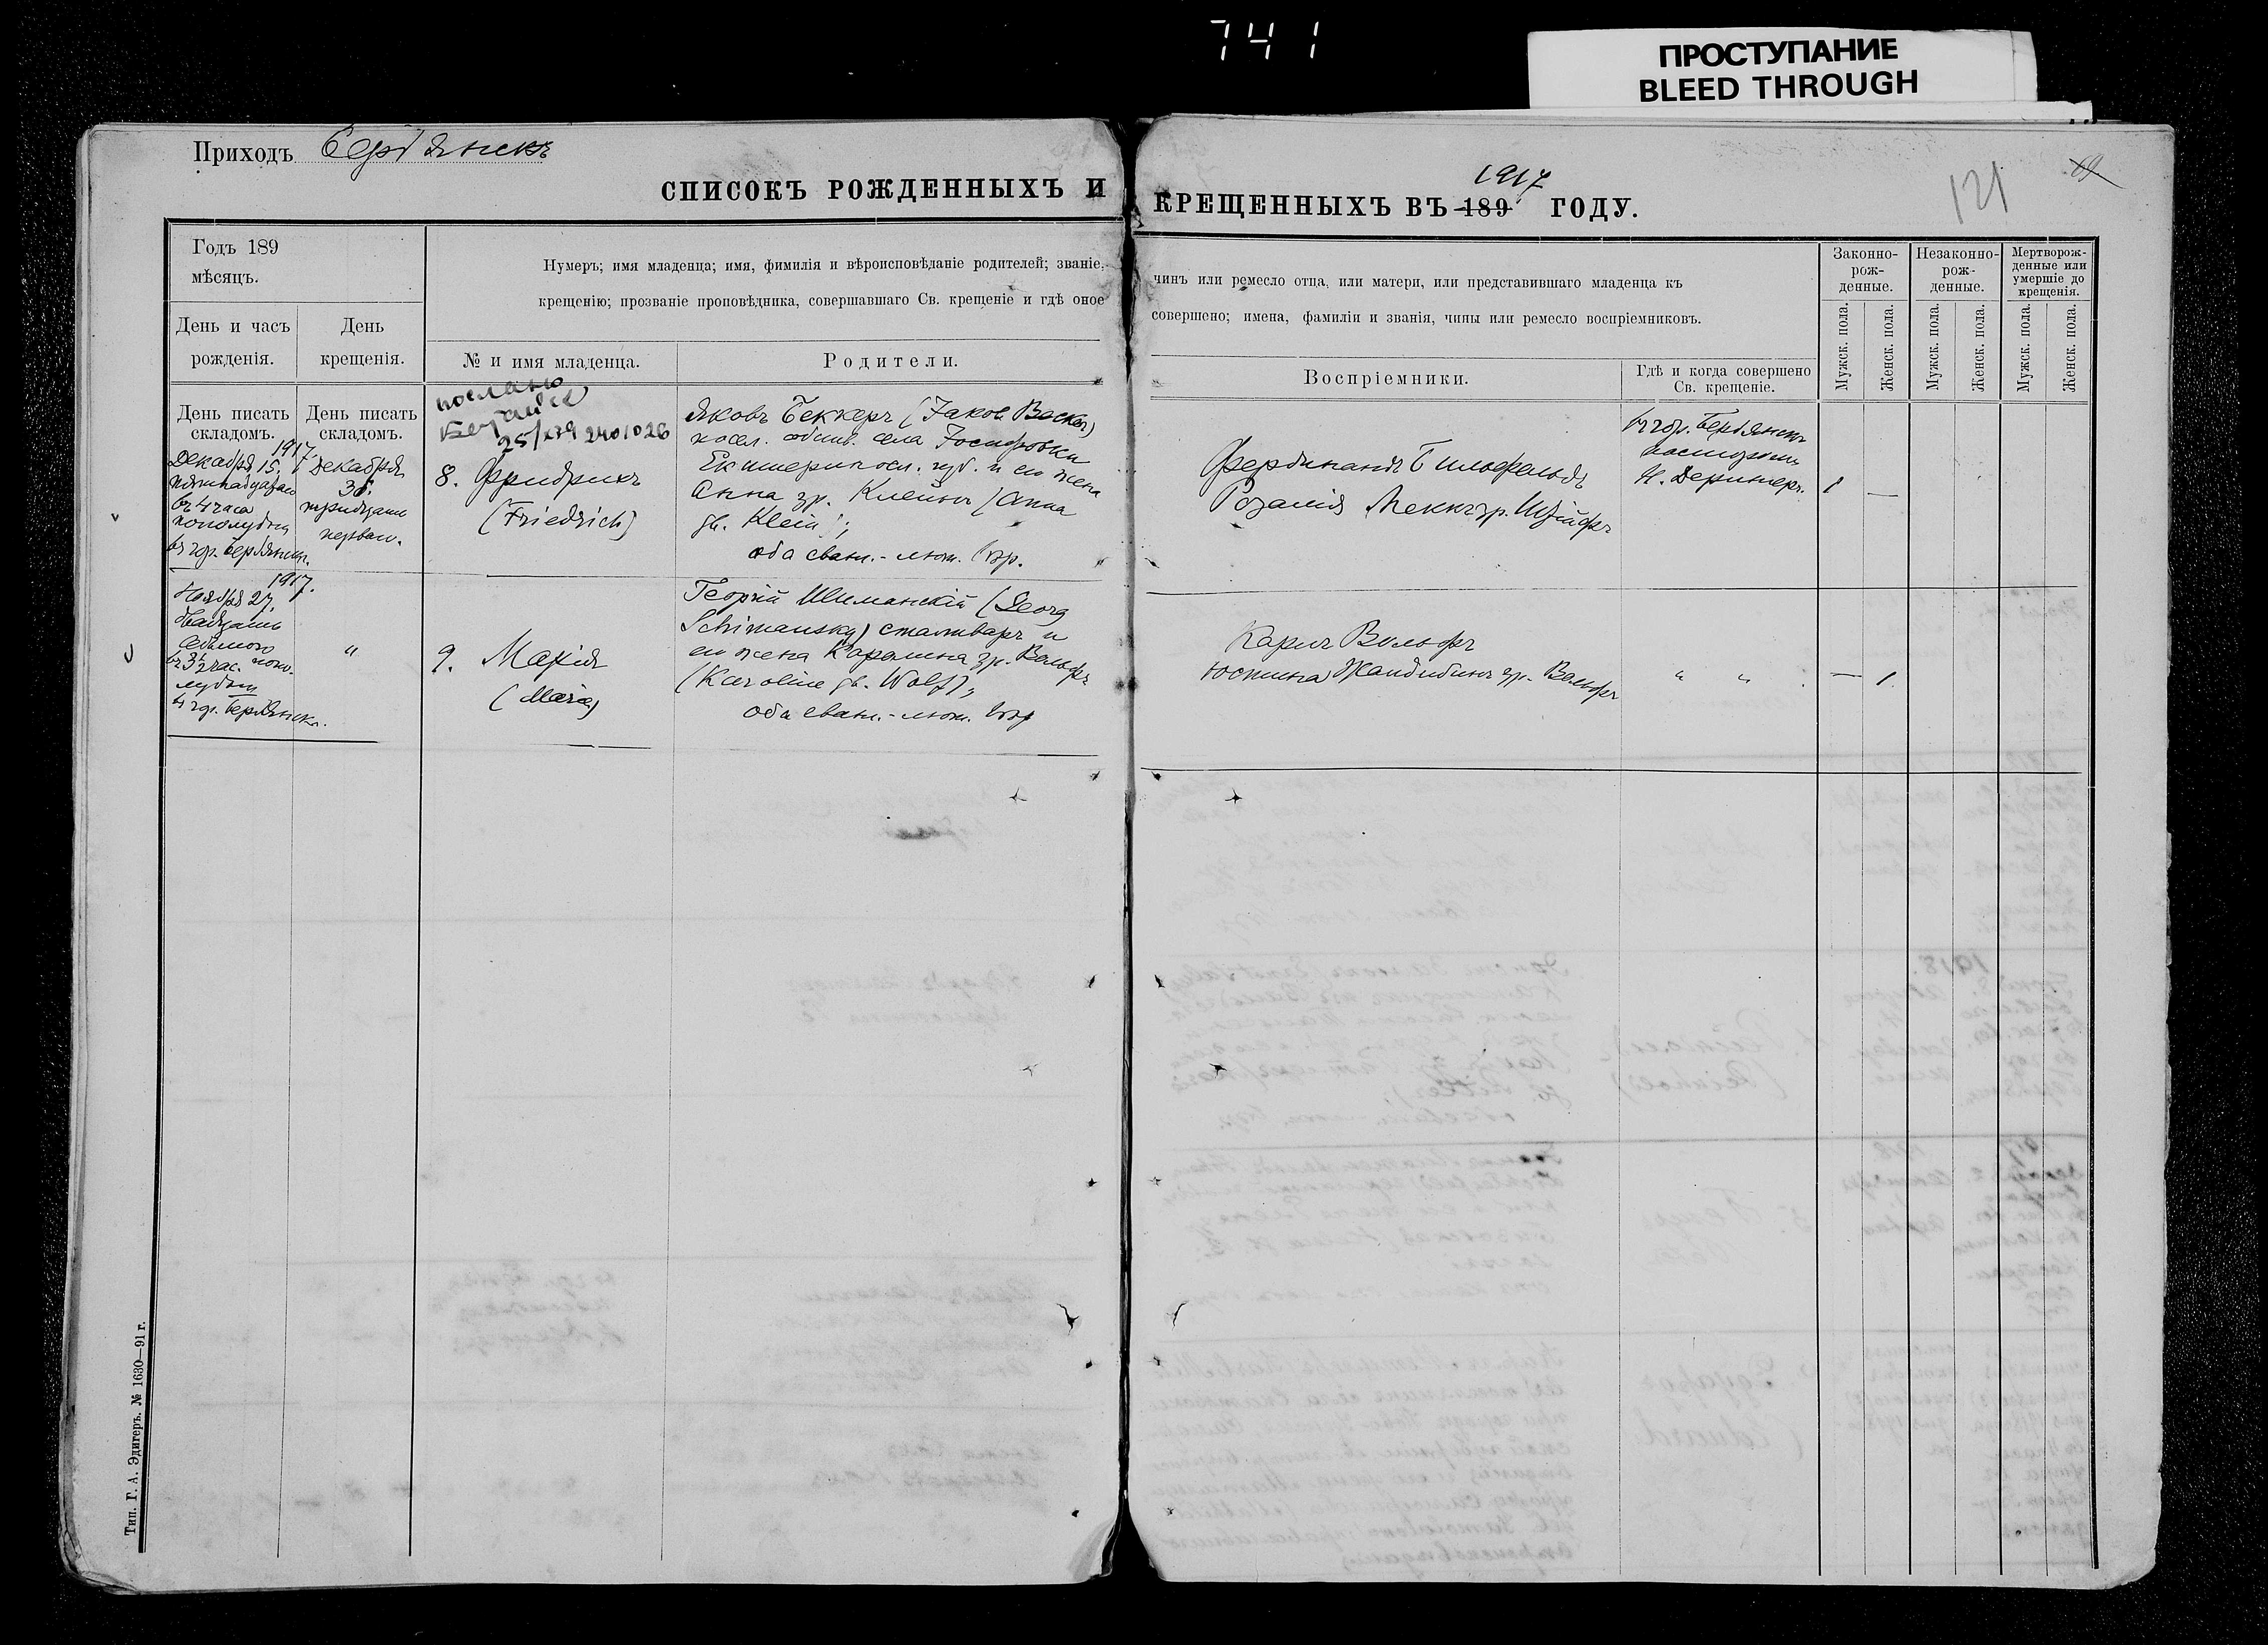 741
ПРОСТУПАНИЕ
BLEED THROUGH
Приходъ Бердянскъ
СПИСОКЪ РОЖДЕННЫХЪ И КРЕЩЕННЫХЪ ВЪ 189 ГОДУ.
1917
121
Годъ 189
мѣсяцъ.
День и часъ
рожденія.
День
крещенія.
Нумеръ; имя младенца; имя, фимилія и вѣроисповѣданіе родителей; званіе,
чинъ или ремесло отца, или матери, или представившаго младенца къ
крещенію; прозваніе проповѣдника, совершавшаго Св. крещеніе и гдѣ оное
совершено; имена, фамиліи и званія, чины или ремесло воспріемниковъ.
№ и имя младенца.
Родители.
Воспріемники.
Гдѣ и когда совершено
Св. крещеніе.
Законно-
рож-
денные.
Незаконно-
рож-
денные.
Мертворож-
денные или
умершіе до
крещенія.
Мужск. пола.
Женск. пола.
Мужск. пола.
Женск. пола.
Мужск. пола.
Женск. пола.
День писать
складомъ.
День писать
складомъ.
послано
2401026
1917.
Декабря 15.
пятнадцатаго
въ 4 часа
пополудни
въ гор. Бердянскѣ.
Декабря
тридцать
перваго.
8. Фридрихъ
(Friedrich)
Яковъ Беккеръ (Jakob Becker)
посел. собств. села Іосифовки
Екатериносл. губ. и его жена
Анна ур. Клейнъ (Anna
gb. Klein);
оба еванг.-лют. вѣр.
Фердинандъ Бильфельдъ
Розалія Меккъ ур. Штейфъ
въ гор. Бердянскѣ
пасторомъ
1 —
1917.
Ноября 27.
двадцать
седьмого
въ 3½ час. попо-
лудни
въ гор. Бердянскѣ.
"
9. Марія
(Maria)
Георгій Шиманскій (Georg
Schimansky) сталеваръ и
его жена Каролина ур. Вольфъ
(Karoline gb. Wolf);
оба еванг.-лют. вѣр.
Карлъ Вольфъ
Юстина Жандибинъ ур. Вольфъ
" "
— 1.
Тип. Г. А. Эдигеръ. № 1630—91 г.